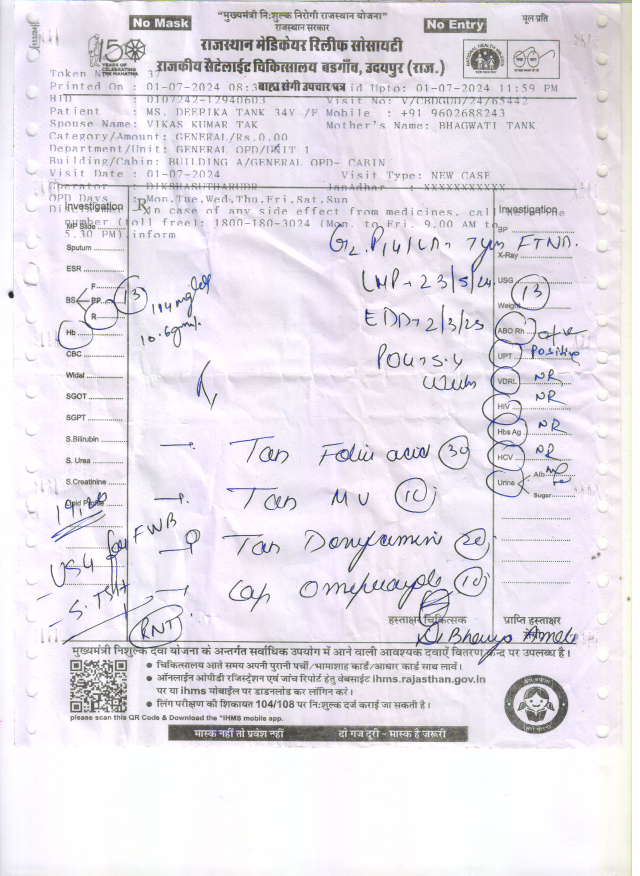 No Mask
"मुख्यमंत्री निःशुल्क निरोगी राजस्थान योजना"
राजस्थान सरकार
No Entry
मूल प्रति
राजस्थान मेडिकेयर रिलीफ सोसायटी
राजकीय सैटेलाईट चिकित्सालय बडगाँव, उदयपुर (राज.)
150 YEARS OF CELEBRATING THE MAHATMA
बाह्य रोगी उपचार पत्र
Token N 37
Printed On : 01-07-2024 08:3 id Upto: 01-07-2024 11:59 PM
HID : 0107242-12940603 Visit No: V/CBDGUD/24/65442
Patient : MS. DEEPIKA TANK 34Y /F Mobile : +91 9602688243
Spouse Name: VIKAS KUMAR TAK Mother's Name: BHAGWATI TANK
Category/Amount: GENERAL/Rs.0.00
Department/Unit: GENERAL OPD/UNIT 1
Building/Cabin: BUILDING A/GENERAL OPD- CABIN
Visit Date : 01-07-2024 Visit Type: NEW CASE
Operator : DIKSHASUTHARUDR JanAadhar : XXXXXXXXXXX
OPD Days : Mon.Tue.Wed.Thu.Fri.Sat.Sun
In case of any side effect from medicines, call
number (toll free): 1800-180-3024 (Mon. to Fri. 9.00 AM to
5.30 PM) inform
Investigation
Rx
Investigation
MP Slide
Sputum
ESR
BS F
PP 13 114 mg/dl
R
Hb 10.6 gm%
CBC
Widal
SGOT
SGPT
S.Bilirubin
S. Urea
S.Creatinine
Lipid Profile
G2 P1 L1 LCB 7 yrs FTND
LMP 23/5/24
EDD 2/3/25
POG 5.4
weeks
BP
X-Ray
USG
Weight
13
ABO Rh
UPT Positive
VDRL NR
HIV NR
Hbs Ag NR
HCV NR
Urine Alb.
Sugar
Tab Folic acid 30
Tab MV 10
Tab Doxylamine 20
Cap Omeprazole 10
USG for FWB
S. TSH
RNT
हस्ताक्षर चिकित्सक
प्राप्ति हस्ताक्षर
मुख्यमंत्री निःशुल्क दवा योजना के अन्तर्गत सर्वाधिक उपयोग में आने वाली आवश्यक दवाऐं वितरण केन्द्र पर उपलब्ध है।
● चिकित्सालय आते समय अपनी पुरानी पर्ची/भामाशाह कार्ड/आधार कार्ड साथ लावें।
● ऑनलाईन ओपीडी रजिस्ट्रेशन एवं जांच रिपोर्ट हेतु वेबसाईट ihms.rajasthan.gov.in
पर या ihms मोबाईल पर डाउनलोड कर लॉगिन करें।
● लिंग परीक्षण की शिकायत 104/108 पर निःशुल्क दर्ज कराई जा सकती है।
please scan this QR Code & Download the "IHMS mobile app.
मास्क नहीं तो प्रवेश नहीं
दो गज दूरी - मास्क है जरूरी